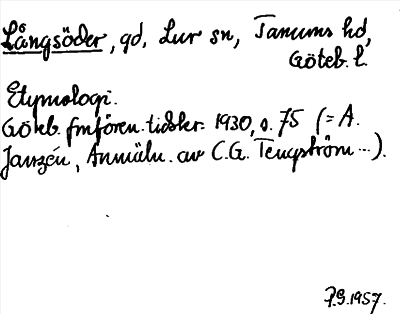 Långsöder, gd, Lur sn, Tanums hd,
Göteb. l.
Etymologi.
Göteb. fmfören. tidskr. 1930, s. 75 (= A.
Janzén, Anmäln. av C.G. Tengström ...).
7.9.1957.